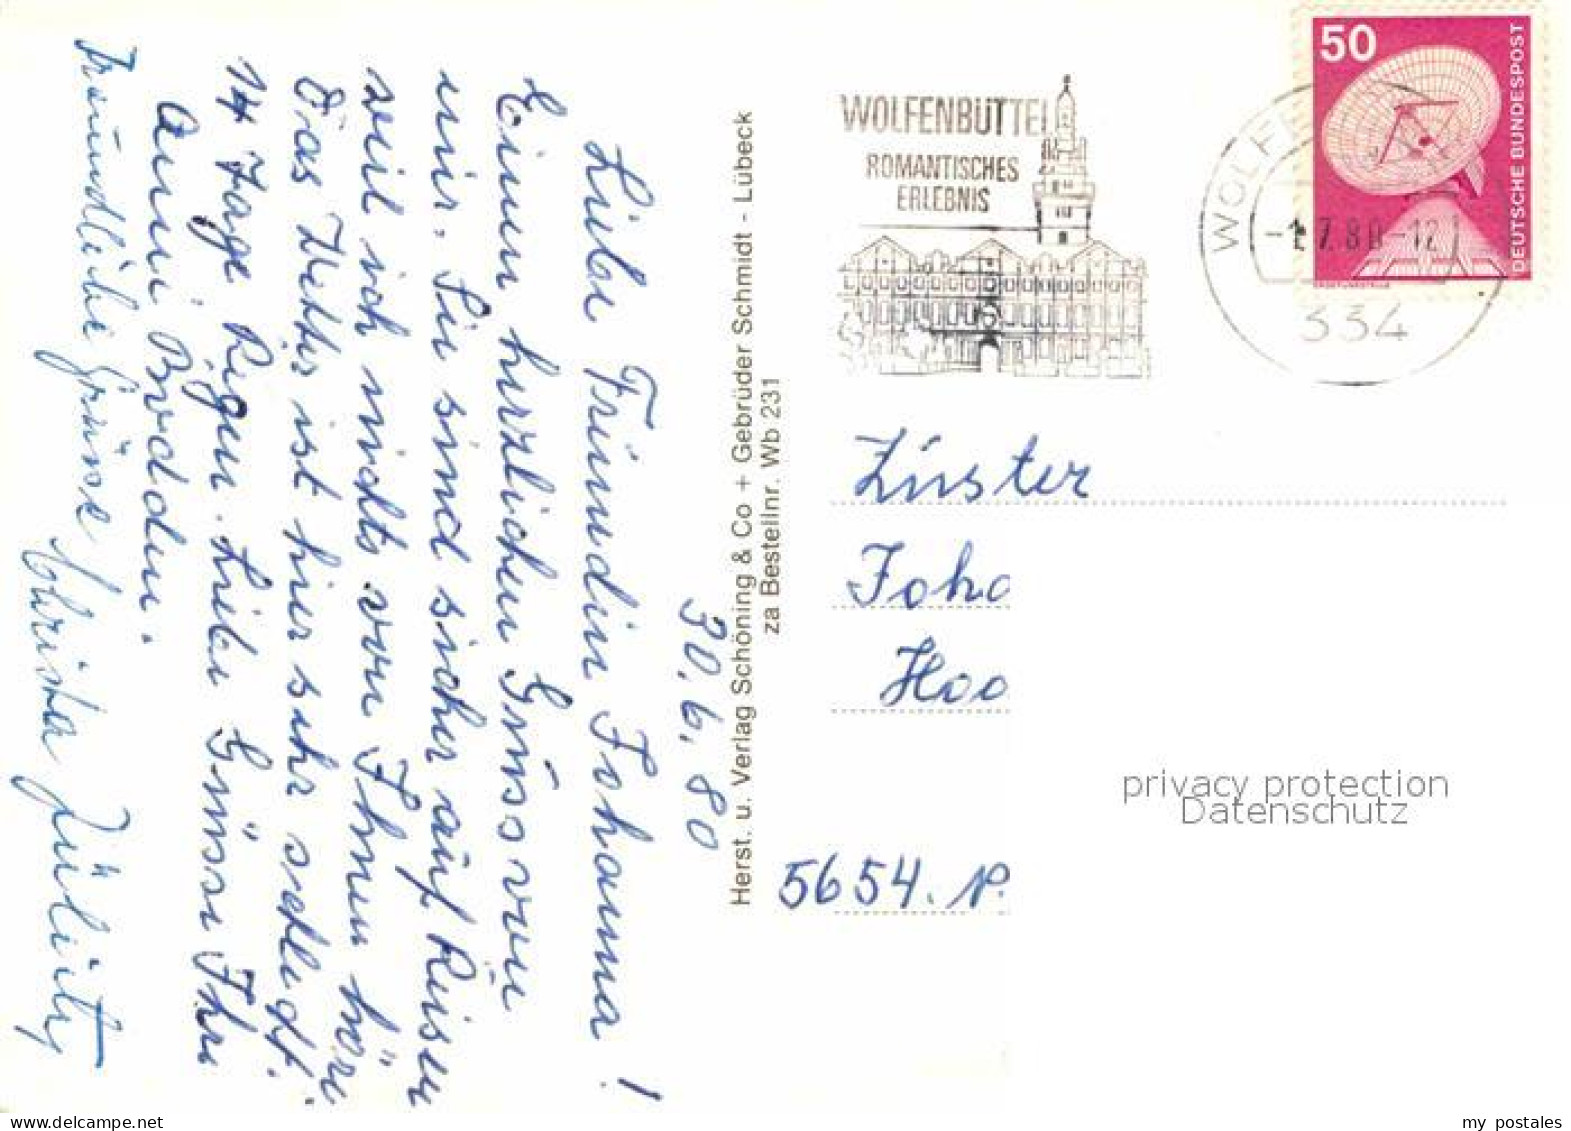 30.6.80
Liebe Freundin Johanna!
Einen herzlichen Gruss von
mir. Sie sind sicher auf Reisen
weil ich nichts von Ihnen höre.
Das Wetter ist hier sehr schlecht.
14 Tage Regen. Liebe Grüsse Ihre
Anni Bodden.
Freundliche Grüsse Christa
Herst. u. Verlag Schöning & Co + Gebrüder Schmidt - Lübeck
za Bestellnr. Wb 231
WOLFENBÜTTEL
ROMANTISCHES
ERLEBNIS
WOLFE
-1.7.80-12
334
50
DEUTSCHE BUNDESPOST
Joha
Hoo
5654. N.
privacy protection
Datenschutz
my_postales